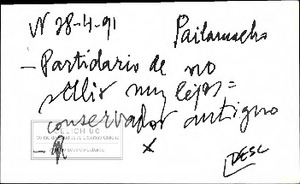 N 28-4-91 Pailamacho
- Partidario de no
salir muy lejos =
conservador antiguo
x
DESC